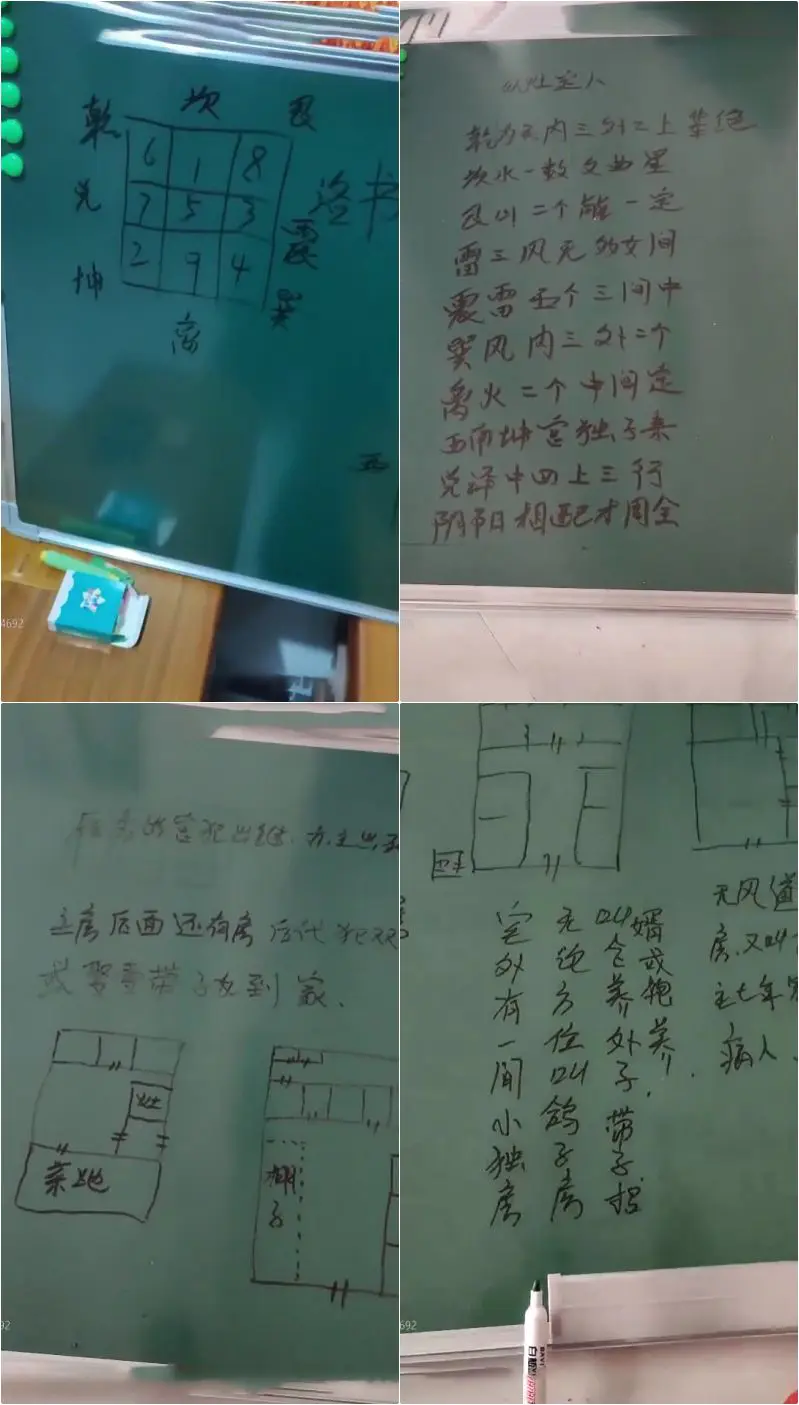 乾 坎 艮
6 1 8
兑 7 5 3 震
洛书
2 9 4
坤 离 巽
西
4692
以灶定人
乾为天内三外二上辈绝
坎水一数文曲星
艮山二个能一定
雷三风无的女间
震雷五个三间中
巽风内三外二个
离火二个中间定
西南坤宫独子来
兑泽中四上三行
阴阳相配才周全
主房后面还有房后代犯双
或娶妻带子女到家.
灶
菜地
棚子
92
宅外有一间小独房
无绝方位叫鸽子房
叫仓养外子,带子招
婿或抱养.
无风道
房.又叫
主七年
病人
692